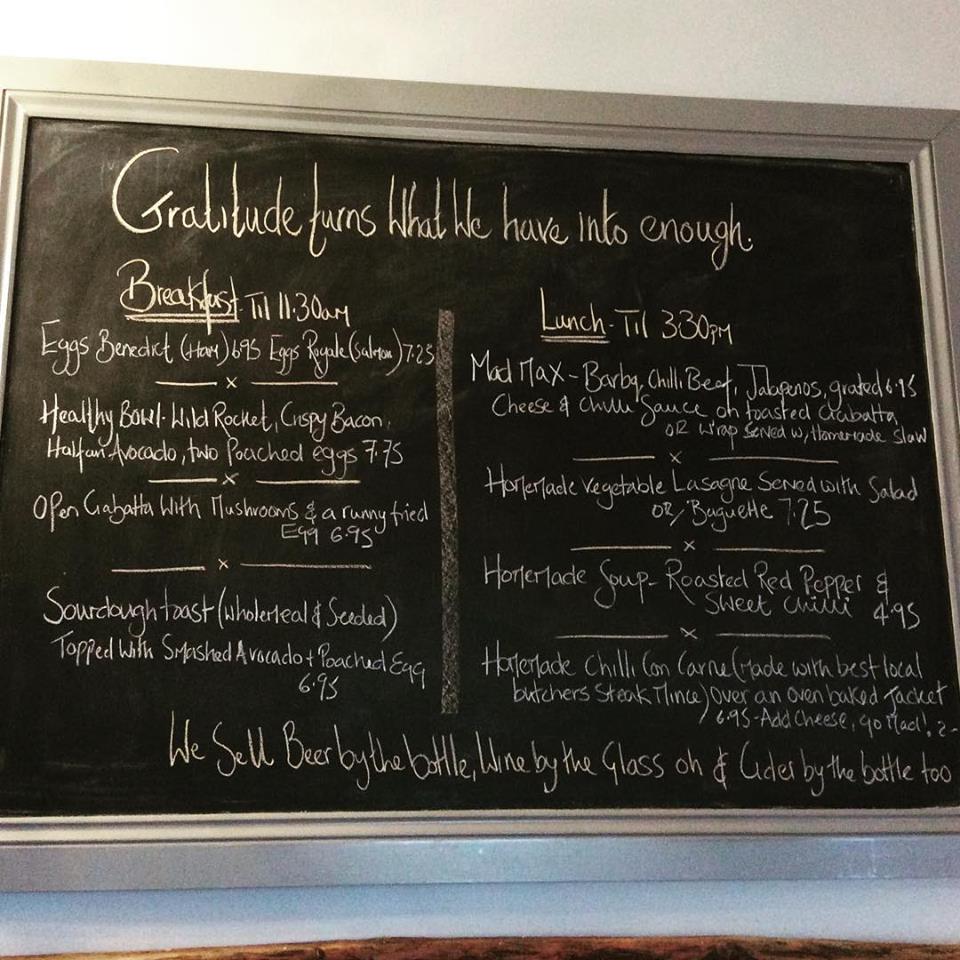 Gratitude turns What We have into enough.
Breakfast - Til 11.30am
Eggs Benedict (Ham) 6.95 Eggs Royale (Salmon) 7.25
x
Healthy Bowl - Wild Rocket, Crispy Bacon,
Half an Avocado, two Poached eggs 7.75
x
Open Ciabatta With Mushrooms & a runny fried
Egg 6.95
x
Sourdough toast (Wholemeal & Seeded)
Topped With Smashed Avocado + Poached Egg
6.95
Lunch - Til 3.30pm
Mad Max - Barbq, Chilli Beef, Jalapenos, grated 6.95
Cheese & Chilli Sauce on toasted Ciabatta
OR Wrap Served w, Homemade Slaw
x
Homemade Vegetable Lasagne Served with Salad
OR/ Baguette 7.25
x
Homemade Soup - Roasted Red Pepper &
Sweet Chilli 4.95
x
Homemade Chilli Con Carne (Made with best local
butchers Steak Mince) Over an oven baked Jacket
6.95 - Add Cheese, go Mad! 2-
We Sell Beer by the bottle, Wine by the Glass oh & Cider by the bottle too